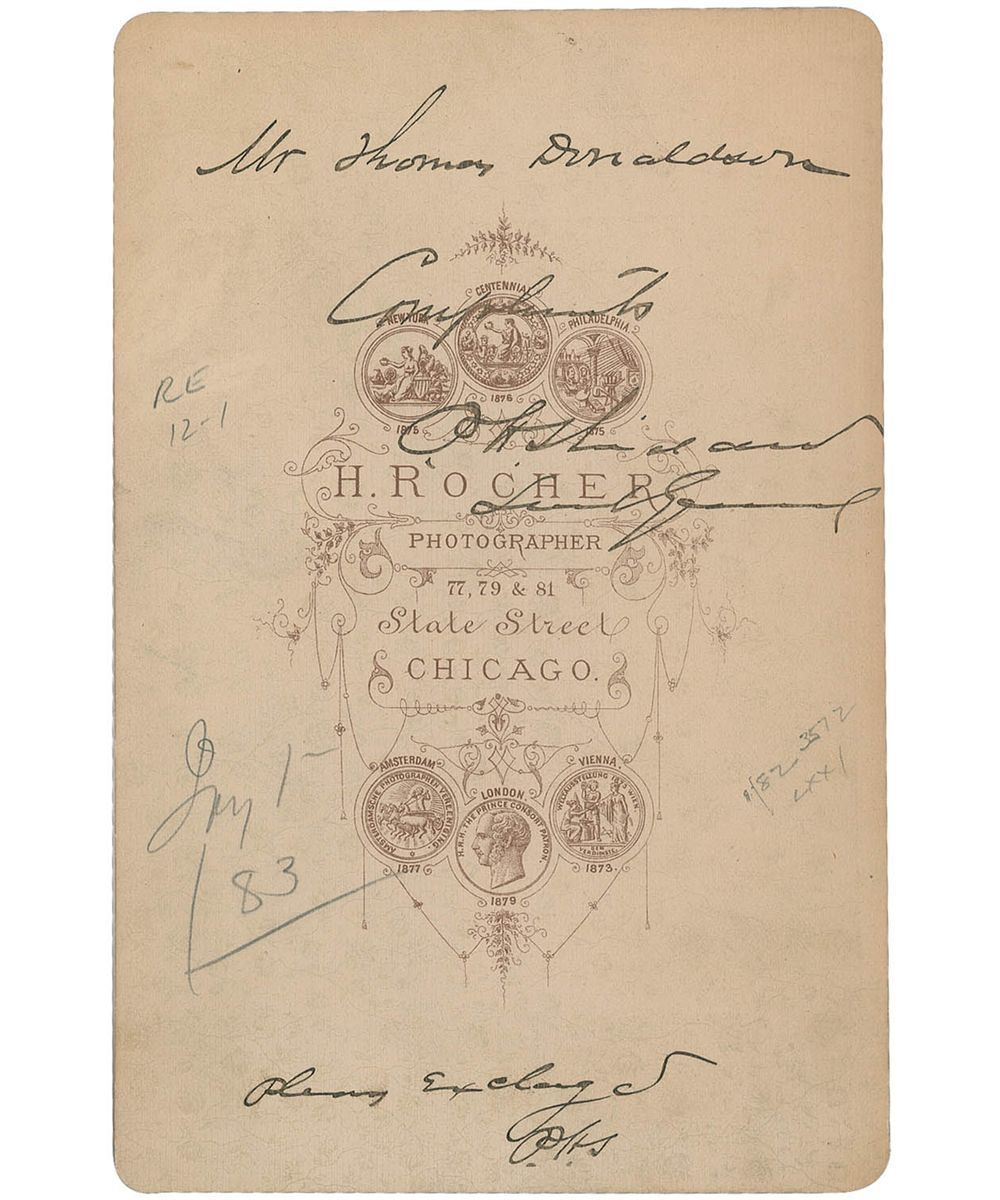 Mr Thomas Donaldson
Compliments
CENTENNIAL
NEW YORK
PHILADELPHIA
1876
1875
1875
P H Sheridan
Lieut General
RE
12-1
H. ROCHER
PHOTOGRAPHER
77, 79 & 81
State Street
CHICAGO.
Jany 1-
83
AMSTERDAM
VIENNA
LONDON
AMSTERDAMSCHE PHOTOGRAPHEN VEREENIGING.
H.R.H. THE PRINCE CONSORT PATRON.
WELTAUSSTELLUNG 1873 WIEN.
DEM VERDIENSTE
1877
1873.
1879
Please Exchange
P.H.S